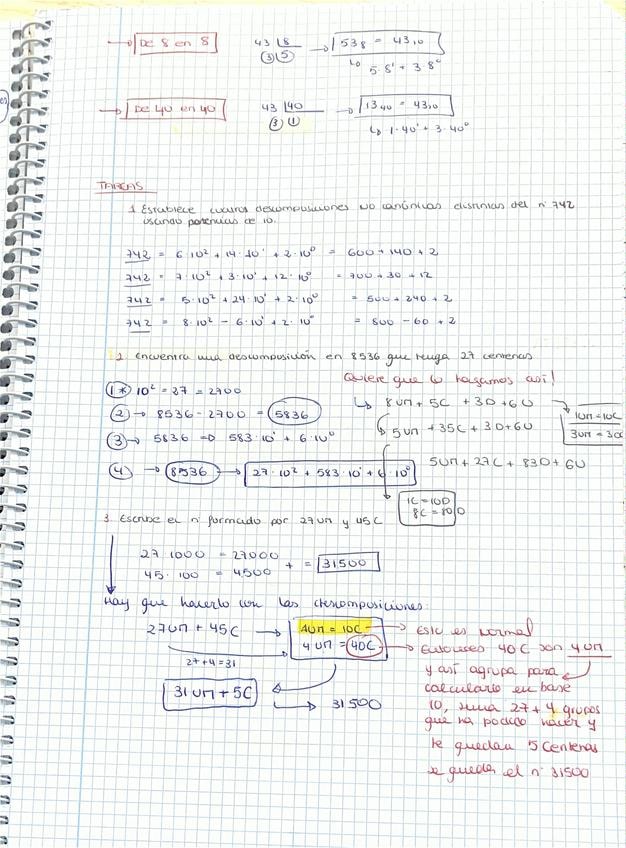 → De 8 en 8
43 |8
③ ⑤
→ 53₈ = 43₁₀
↳ 5·8¹ + 3·8⁰
→ De 40 en 40
43 |40
③ ①
→ 13₄₀ = 43₁₀
↳ 1·40¹ + 3·40⁰
TAREAS
1. Establece cuatro descomposiciones no canónicas distintas del nº 742
usando potencias de 10.
742 = 6·10² + 14·10¹ + 2·10⁰ = 600 + 140 + 2
742 = 7·10² + 3·10¹ + 12·10⁰ = 700 + 30 + 12
742 = 5·10² + 24·10¹ + 2·10⁰ = 500 + 240 + 2
742 = 8·10² - 6·10¹ + 2·10⁰ = 800 - 60 + 2
2. Encuentra una descomposición en 8536 que tenga 27 centenas
Quiere que lo hagamos así!
① * 10² = 27 = 2700
② → 8536 - 2700 = 5836
③ → 5836 => 583·10¹ + 6·10⁰
④ → 8536 → 27·10² + 583·10¹ + 6·10⁰
↳ 8UM + 5C + 3D + 6U
1UM = 10C
3UM = 30C
5UM + 35C + 3D + 6U
5UM + 27C + 83D + 6U
1C = 10D
8C = 80D
3. Escribe el nº formado por 27UM y 45C
27·1000 = 27000
45·100 = 4500
+ = 31500
Hay que hacerlo con las descomposiciones:
27UM + 45C →
1UM = 10C → Esto es normal
4UM = 40C → Entonces 40C son 4UM
27+4=31
y así agrupa para
calcularlo en base
10, suma 27 + 4 grupos
que ha podido hacer y
le quedan 5 centenas
se queda el nº 31500
31UM + 5C
→ 31500